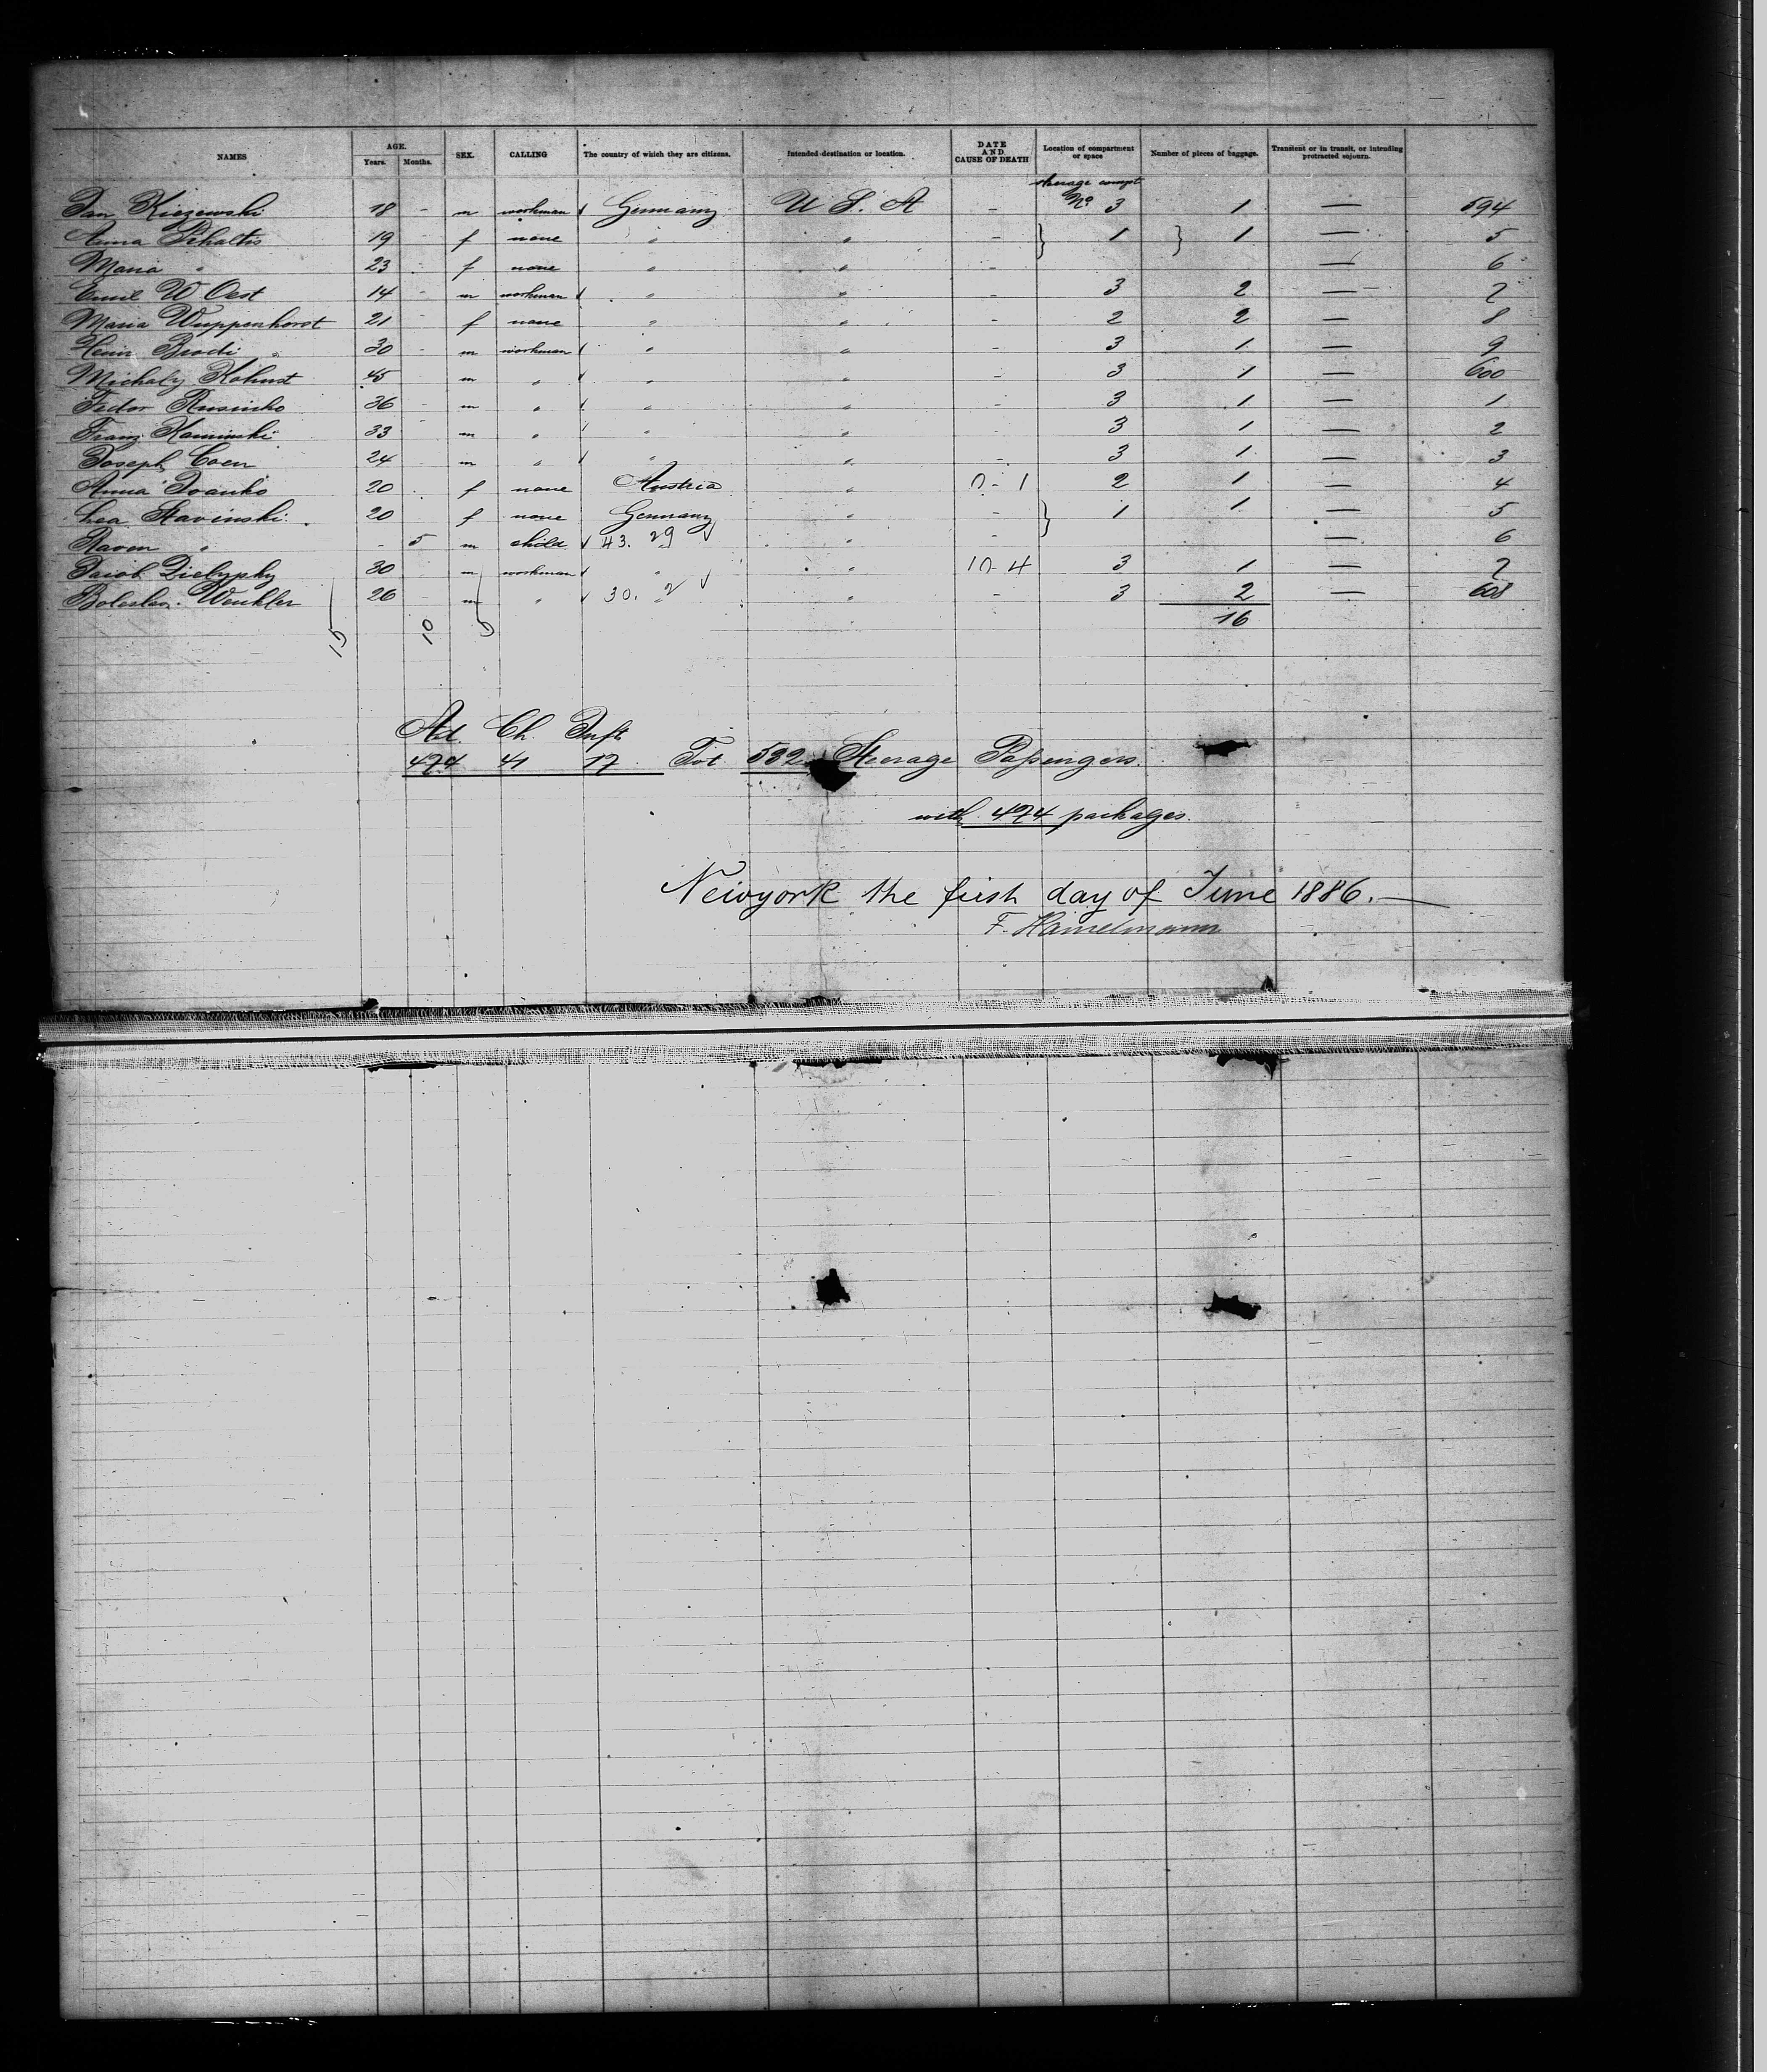 NAMES AGE. Years. Months. SEX. CALLING The country of which they are citizens. Intended destination or location. DATE AND CAUSE OF DEATH Location of compartment or space Number of pieces of baggage. Transient or in transit, or intending protracted sojourn.
steerage compt
Jan Kiezewski 18 - m workman Germany U S. A - No 3 1 — 594
Anna 19 - f none " " - } 1 } 1 — 5
Maria " 23 f none " " - — 6
Emil W Oest 14 - m workman " " - 3 2 — 7
Maria Wuppenhorst 21 - f none " " - 2 2 — 8
Brodi 30 - m workman " " - 3 1 — 9
Michaly Kohust 45 - m " " " - 3 1 — 600
Fedor Rusinko 36 - m " " " - 3 1 — 1
Franz Kaminski 33 - m " " " - 3 1 — 2
Joseph Coen 24 m " " " - 3 1 — 3
Anna Ivanko 20 f none Austria " 0 - 1 2 1 — 4
Lea Stavinski 20 f none Germany " - } 1 1 — 5
Raven " - 5 m child 43. 29 " - — 6
Jacob 30 m workman " " 10-4 3 1 — 7
Boleslav Wenkler 26 - m " 30. 2 " - 3 2 — 608
15 10 5 " 16
Ad. Ch. Inft
474 41 17 Tot 532 Steerage Passengers.
with 474 packages.
Newyork the first day of June 1886. —
F. Hamelmann